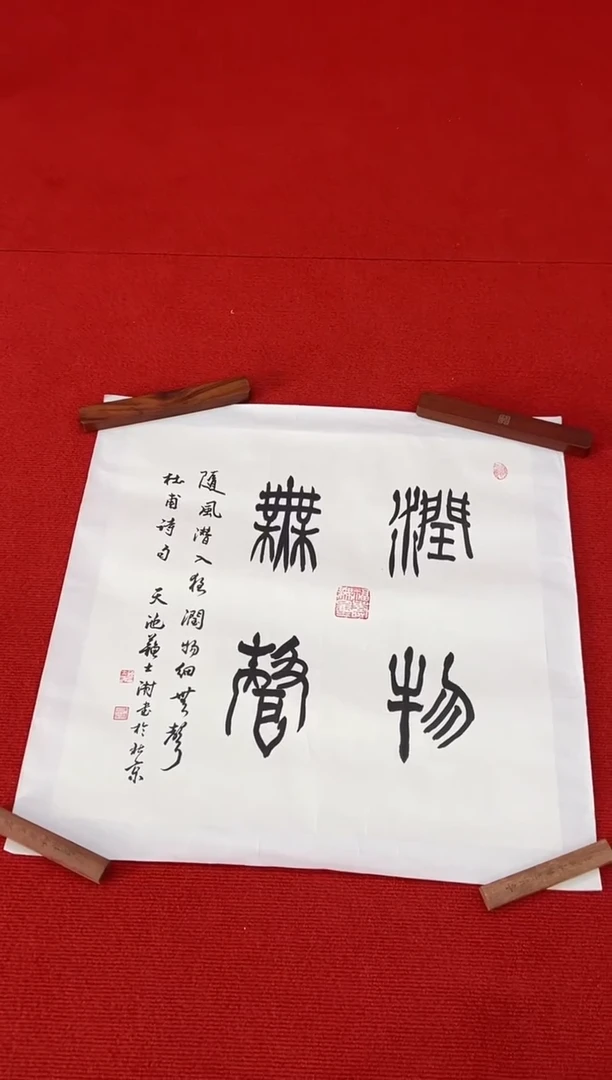 潤物
無聲
隨風潛入夜潤物細無聲
杜甫诗句 天池蘇士澍书於北京